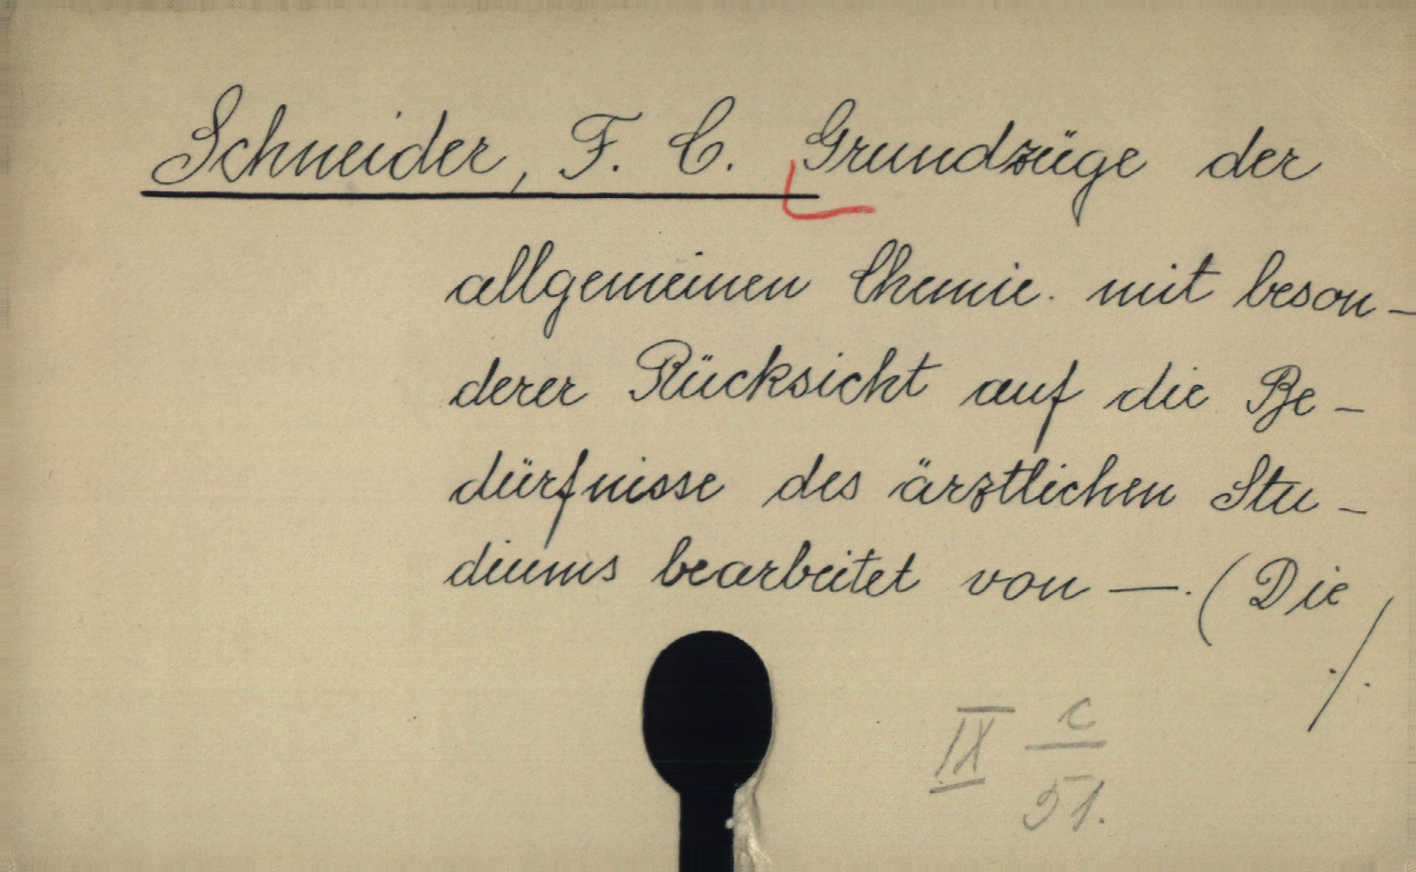 Schneider, F. C. Grundzüge der
allgemeinen Chemie mit beson-
derer Rücksicht auf die Be-
dürfnisse des ärztlichen Stu-
diums bearbeitet von —. (Die
./.
IX c
51.